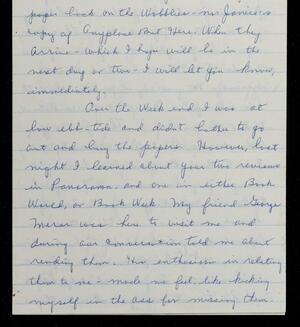 paper back on the Wobblies - nor Janice's
copy of Anyplace But Here. When they
arrive - which I hope will be in the
next day or two - I will let you know,
immediately.
Over the week end I was at
low ebb-tide and didn't bother to go
out and buy the papers. However, last
night I learned about your two reviews
in Panorama, and one in either Book
World, or Book Week. My friend George
was here to visit me and
during our conversation told me about
reading them. His enthusiasm in relating
them to me - made me feel like kicking
myself in the ass for missing them.